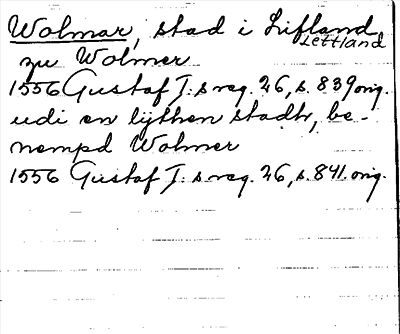 Wolmar, stad i Lifland
Lettland
zu Wolmer
1556 Gustaf I:s reg. 26, s. 839 orig.
udi en lijthen stadh, be-
nempd Wolmer
1556 Gustaf I:s reg. 26, s. 841. orig.